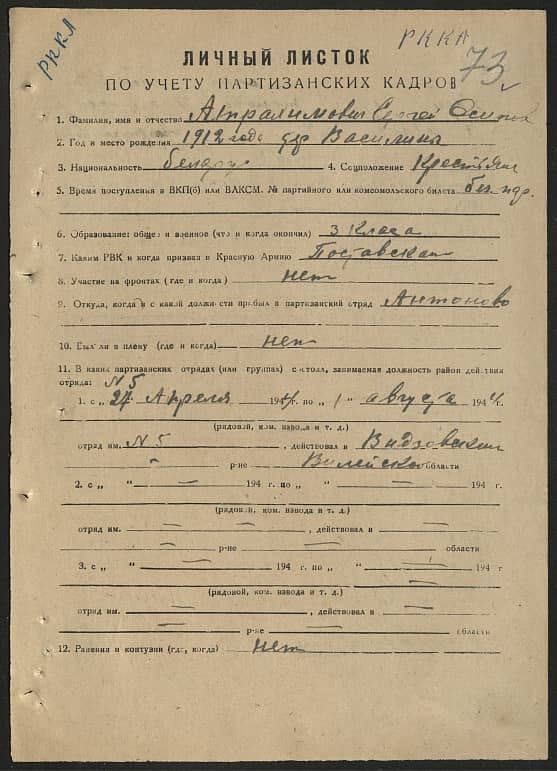 РККА
РККА
73
ЛИЧНЫЙ ЛИСТОК
ПО УЧЕТУ ПАРТИЗАНСКИХ КАДРОВ
1. Фамилия, имя и отчество Сергей
2. Год и место рождения 1912 года
3. Национальность беларус 4. Соцположение
5. Время поступления в ВКП(б) или ВЛКСМ. № партийного или комсомольского билета
6. Образование: общее и военное (что и когда окончил) 3 класа
7. Каким РВК и когда призван в Красную Армию Поставским
8. Участие на фронтах (где и когда) нет
9. Откуда, когда и с какой должности прибыл в партизанский отряд Антоново
10. Был ли в плену (где и когда) нет
11. В каких партизанских отрядах (или группах) состоял, занимаемая должность район действия
отряда: N 5
1. с „ 27 Апреля 1944 г. по „ 1 " августа 1944 г.
(рядовой, ком. взвода и т. д.)
отряд им. N 5, действовал в Видзовским
р-не Вилейской области
2. с „ " — 194 г. по „ " — 194 г.
(рядовой, ком. взвода и т. д.)
отряд им. —, действовал в —
— р-не — области
3. с „ " — 194 г. по „ " — 194 г.
(рядовой, ком. взвода и т. д.)
отряд им. —, действовал в —
— р-не — области
12. Ранения и контузии (где, когда) нет